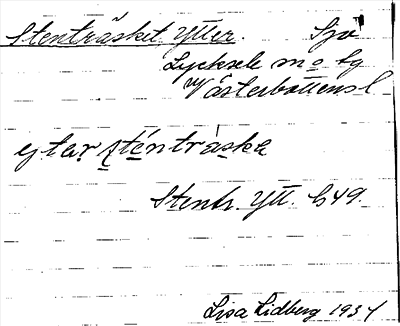 Stenträsket, Ytter. Sjö
Lycksele m o fg
Västerbottensl
ytar sténtráska
Stentr. Ytt. G49.
Lisa Lidberg 1934